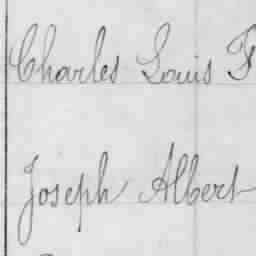 Charles Louis F
Joseph Albert